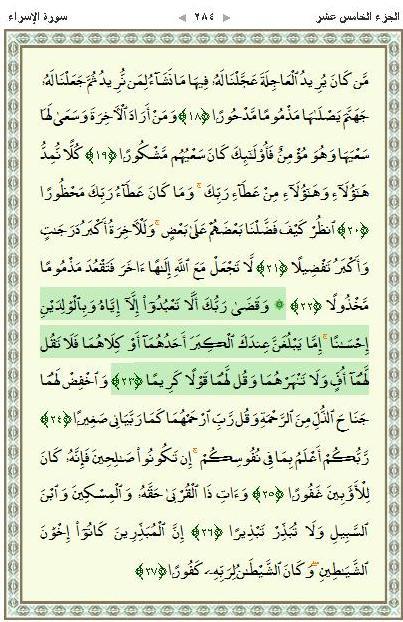 الجزء الخامس عشر ٢٨٤ سورة الإسراء
مَّن كَانَ يُرِيدُ ٱلْعَاجِلَةَ عَجَّلْنَا لَهُۥ فِيهَا مَا نَشَآءُ لِمَن نُّرِيدُ ثُمَّ جَعَلْنَا لَهُۥ
جَهَنَّمَ يَصْلَىٰهَا مَذْمُومًا مَّدْحُورًا ﴿١٨﴾ وَمَنْ أَرَادَ ٱلْأَخِرَةَ وَسَعَىٰ لَهَا
سَعْيَهَا وَهُوَ مُؤْمِنٌ فَأُو۟لَٰٓئِكَ كَانَ سَعْيُهُم مَّشْكُورًا ﴿١٩﴾ كُلًّا نُّمِدُّ
هَٰٓؤُلَآءِ وَهَٰٓؤُلَآءِ مِنْ عَطَآءِ رَبِّكَ ۚ وَمَا كَانَ عَطَآءُ رَبِّكَ مَحْظُورًا
﴿٢٠﴾ ٱنظُرْ كَيْفَ فَضَّلْنَا بَعْضَهُمْ عَلَىٰ بَعْضٍ ۚ وَلَلْأَخِرَةُ أَكْبَرُ دَرَجَٰتٍ
وَأَكْبَرُ تَفْضِيلًا ﴿٢١﴾ لَّا تَجْعَلْ مَعَ ٱللَّهِ إِلَٰهًا ءَاخَرَ فَتَقْعُدَ مَذْمُومًا
مَّخْذُولًا ﴿٢٢﴾ ۞ وَقَضَىٰ رَبُّكَ أَلَّا تَعْبُدُوٓا۟ إِلَّآ إِيَّاهُ وَبِٱلْوَٰلِدَيْنِ
إِحْسَٰنًا ۚ إِمَّا يَبْلُغَنَّ عِندَكَ ٱلْكِبَرَ أَحَدُهُمَآ أَوْ كِلَاهُمَا فَلَا تَقُل
لَّهُمَآ أُفٍّ وَلَا تَنْهَرْهُمَا وَقُل لَّهُمَا قَوْلًا كَرِيمًا ﴿٢٣﴾ وَٱخْفِضْ لَهُمَا
جَنَاحَ ٱلذُّلِّ مِنَ ٱلرَّحْمَةِ وَقُل رَّبِّ ٱرْحَمْهُمَا كَمَا رَبَّيَانِى صَغِيرًا ﴿٢٤﴾
رَّبُّكُمْ أَعْلَمُ بِمَا فِى نُفُوسِكُمْ ۚ إِن تَكُونُوا۟ صَٰلِحِينَ فَإِنَّهُۥ كَانَ
لِلْأَوَّٰبِينَ غَفُورًا ﴿٢٥﴾ وَءَاتِ ذَا ٱلْقُرْبَىٰ حَقَّهُۥ وَٱلْمِسْكِينَ وَٱبْنَ
ٱلسَّبِيلِ وَلَا تُبَذِّرْ تَبْذِيرًا ﴿٢٦﴾ إِنَّ ٱلْمُبَذِّرِينَ كَانُوٓا۟ إِخْوَٰنَ
ٱلشَّيَٰطِينِ ۖ وَكَانَ ٱلشَّيْطَٰنُ لِرَبِّهِۦ كَفُورًا ﴿٢٧﴾